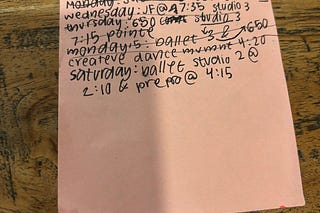 wednesday: JF @ 7:35 studio 3
thursday: 650 studio 3
7:15 pointe
monday 5: ballet 3 @ 650
creative dance mvmnt 4:20
saturday: ballet studio 2 @
2:10 & prepro @ 4:15